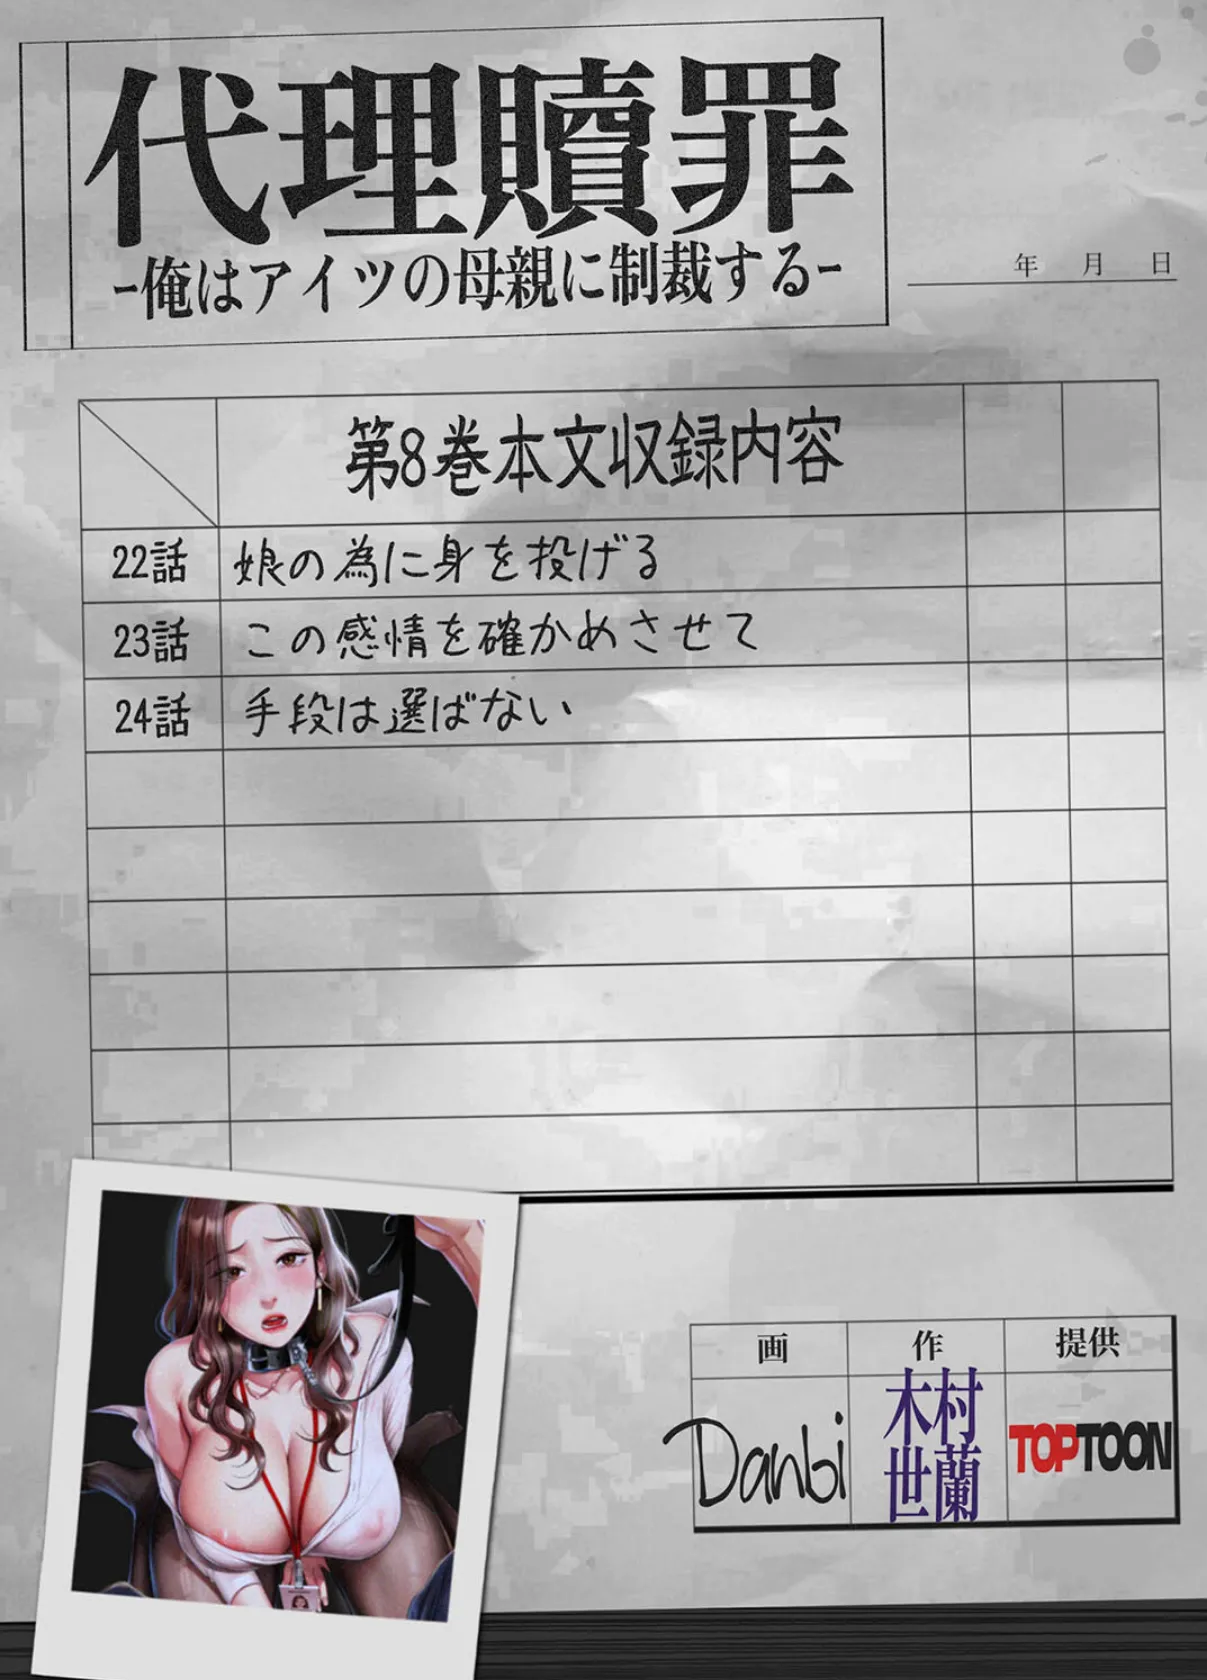 代理贖罪
-俺はアイツの母親に制裁する-
年 月 日
第8巻本文収録内容
22話 娘の為に身を投げる
23話 この感情を確かめさせて
24話 手段は選ばない
画 作 提供
Danbi 木村世蘭 TOPTOON